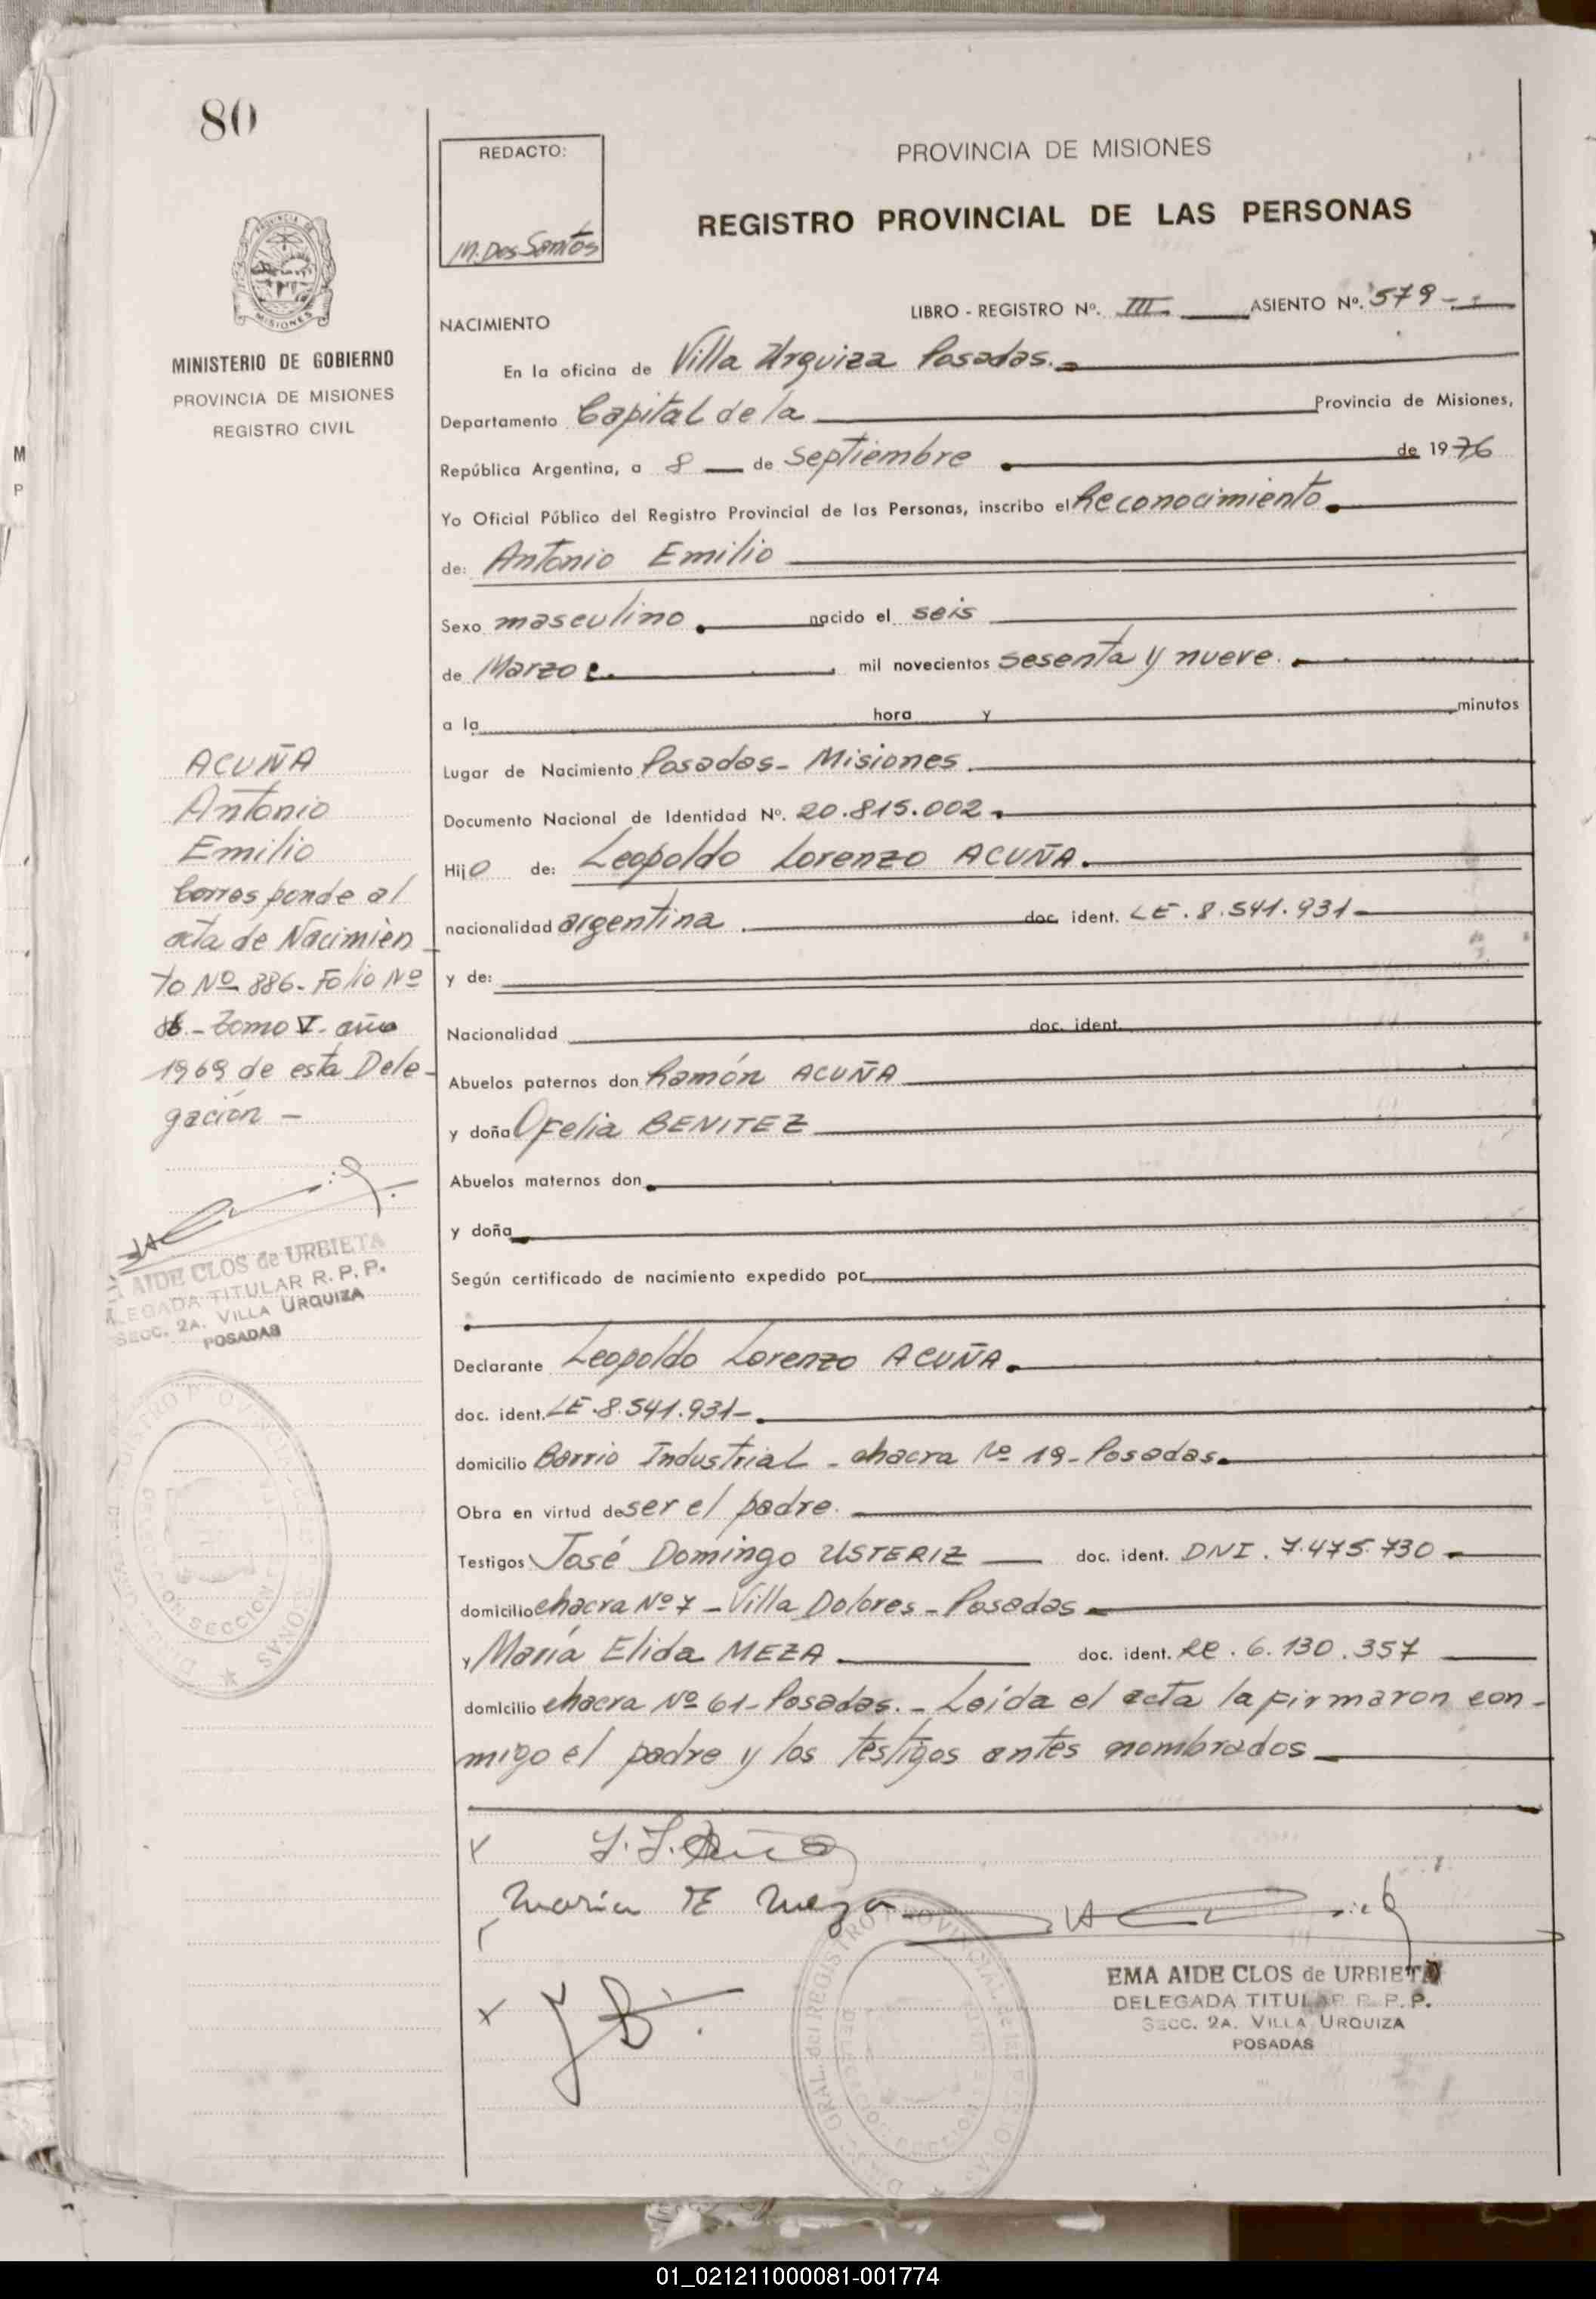 80
REDACTO:
M. Dos Santos
PROVINCIA DE MISIONES
REGISTRO PROVINCIAL DE LAS PERSONAS
MISIONES
MINISTERIO DE GOBIERNO
PROVINCIA DE MISIONES
REGISTRO CIVIL
NACIMIENTO
LIBRO - REGISTRO Nº. III ASIENTO Nº. 579-
En la oficina de Villa Urquiza Posadas.
Departamento Capital de la Provincia de Misiones,
República Argentina, a 8 de Septiembre de 1976
Yo Oficial Público del Registro Provincial de las Personas, inscribo el Reconocimiento
de: Antonio Emilio
Sexo masculino nacido el seis
de Marzo mil novecientos sesenta y nueve.
a la hora y minutos
Lugar de Nacimiento Posadas- Misiones
Documento Nacional de Identidad Nº. 20.815.002
Hijo de: Leopoldo Lorenzo ACUÑA.
nacionalidad argentina. doc. ident. LE. 8.541.931-
y de:
Nacionalidad doc. ident.
Abuelos paternos don Ramón ACUÑA
y doña Ofelia BENITEZ
Abuelos maternos don
y doña
Según certificado de nacimiento expedido por
Declarante Leopoldo Lorenzo ACUÑA.
doc. ident. LE.8.541.931-
domicilio Barrio Industrial - chacra Nº 19- Posadas.
Obra en virtud de ser el padre.
Testigos José Domingo USTERIZ doc. ident. DNI. 7.475.730
domicilio chacra Nº 7 - Villa Dolores - Posadas
y María Elida MEZA doc. ident. LC. 6.130.357
domicilio chacra Nº 61- Posadas. - Leída el acta la firmaron con-
migo el padre y los testigos antes nombrados
ACUÑA
Antonio
Emilio
Corresponde al
acta de Nacimien
to Nº 886- Folio Nº
- Tomo V- año
1969 de esta Dele-
gación -
AIDE CLOS de URBIETA
LEGADA TITULAR R. P. P.
SECC. 2A. VILLA URQUIZA
POSADAS
X
L. L. Acuña
María E Meza
X
EMA AIDE CLOS de URBIETA
DELEGADA TITULAR R. P. P.
SECC. 2A. VILLA URQUIZA
POSADAS
M
P
01_021211000081-001774